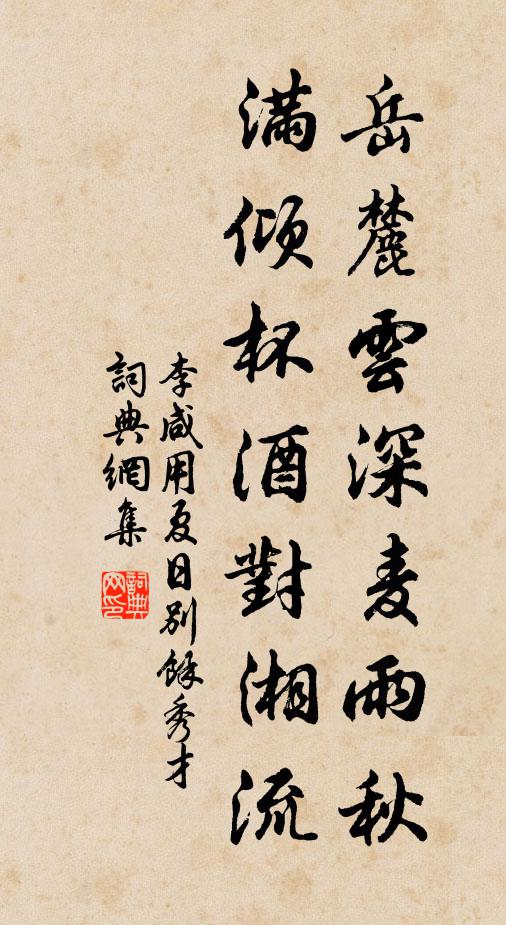 岳麓雲深麦雨秋
滿傾杯酒對湘流
李咸用夏日別餘秀才
詞典網集
詞典
网印